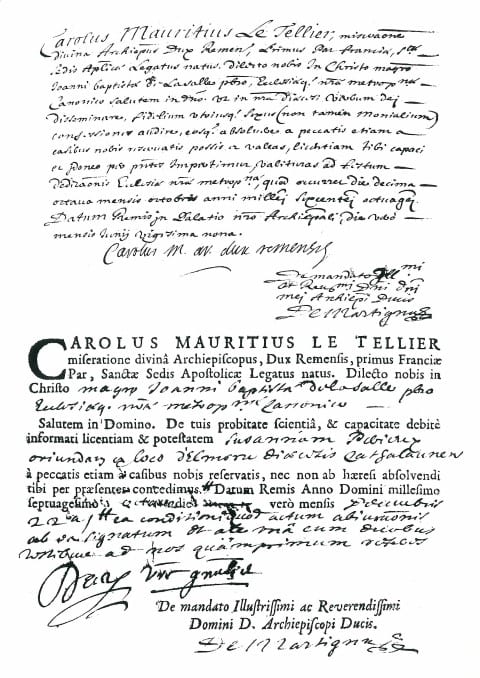 Carolus Mauritius Le Tellier, miseraõne
divina Archiepũs Dux Remen, Primus Par Franciæ, Stæ
Sedis Aplicæ Legatus natus. Dilecto nobis in Christo magro
Joanni baptistæ De Lasalle pbro, Ecclesiæq. nræ metropnæ
Canonico salutem in dno. Ut in nra diœcesi Verbum dej
disseminare, fidelium utriusq. sexus (non tamen Monialium)
confessiones audire, eosq. absoluere a peccatis etiam a
casibus nobis reseruatis possis et valeas, licentiam tibi capaci
et jdoneo per pntes Impertimur, valituras ad festum
Dedicaõnis Ecclesiæ nræ metropnæ, quod occurret die decima
octaua mensis octobris anni millesj sexcentej octuagej
Datum Remis jn Palatio nro Archiepali, die vero
mensis Junij vigesima nona.
Carolus M. ar. dux remensis
De mandato Illmi
ac Reumi Dni dni
mej Archiepi Ducis
De Martigny
CAROLUS MAURITIUS LE TELLIER
miseratione divinâ Archiepiscopus, Dux Remensis, primus Franciæ
Par, Sanctæ Sedis Apostolicæ Legatus natus. Dilecto nobis in
Christo magro Joanni baptistæ de Lasalle pbro
Ecclesiæq. nræ metropnæ Canonico
Salutem in Domino. De tuis probitate scientiâ, & capacitate debitè
informati licentiam & potestatem Susannam
oriundam e loco diœcesis Cathalaunen
à peccatis etiam à casibus nobis reservatis, nec non ab hæresi absolvendi
tibi per præsentes concedimus. Datum Remis Anno Domini millesimo
septuagesimo octavo die verò mensis Decembris
22a ea conditione quod actum abiuraõnis
ab ea signatum et a te una cum duobus
testibus ad nos quamprimum
vic gnalis
De mandato Illustrissimi ac Reverendissimi
Domini D. Archiepiscopi Ducis.
De Martigny